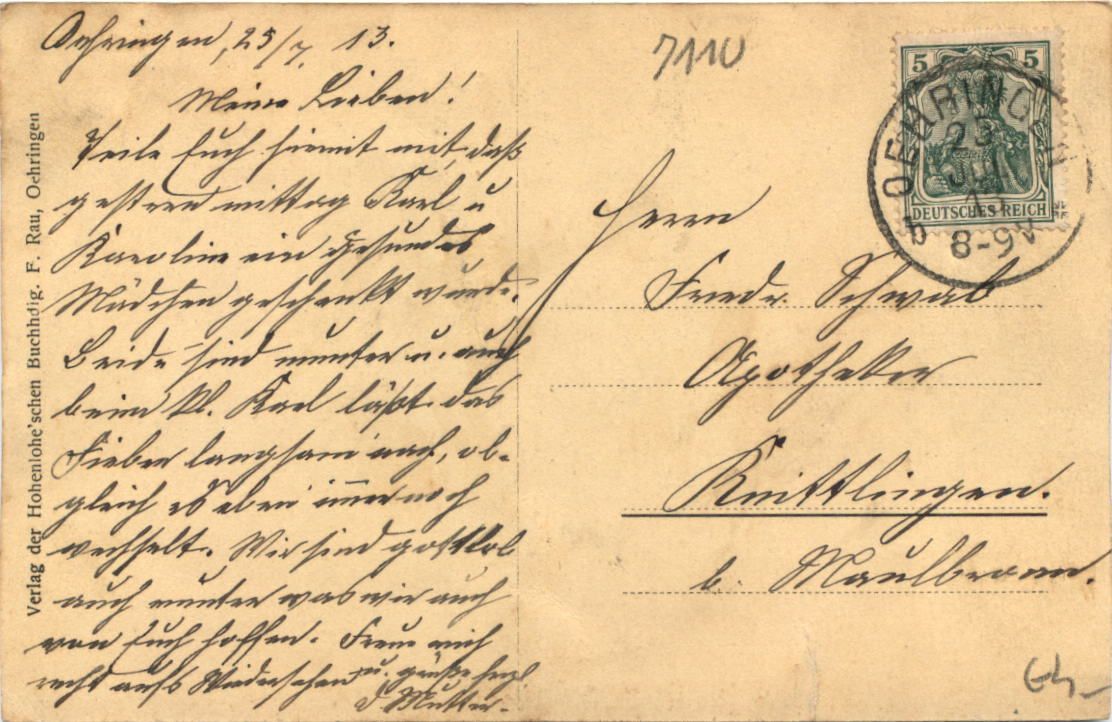 Oehringen, 23/7 13.
Meine Lieben!
Teile Euch hiermit mit, daß
gestern mittag Karl u
Karoline ein gesundes
Mädchen geschenkt wurde.
Beide sind munter u. auch
beim kl. Karl läßt das
Fieber langsam nach, ob-
gleich es eben immer noch
wechselt. Wir sind gottlob
auch munter was wir auch
von Euch hoffen. Freue mich
recht aufs Wiedersehen u. grüße herzl.
d Mutter.
Verlag der Hohenlohe'schen Buchhdlg. F. Rau, Oehringen
7110
5 5
DEUTSCHES REICH
OEHRINGEN
23 JUL
13
8-9V
b
Herrn
Friedr. Schwab
Apotheker
Knittlingen.
b. Maulbronn.